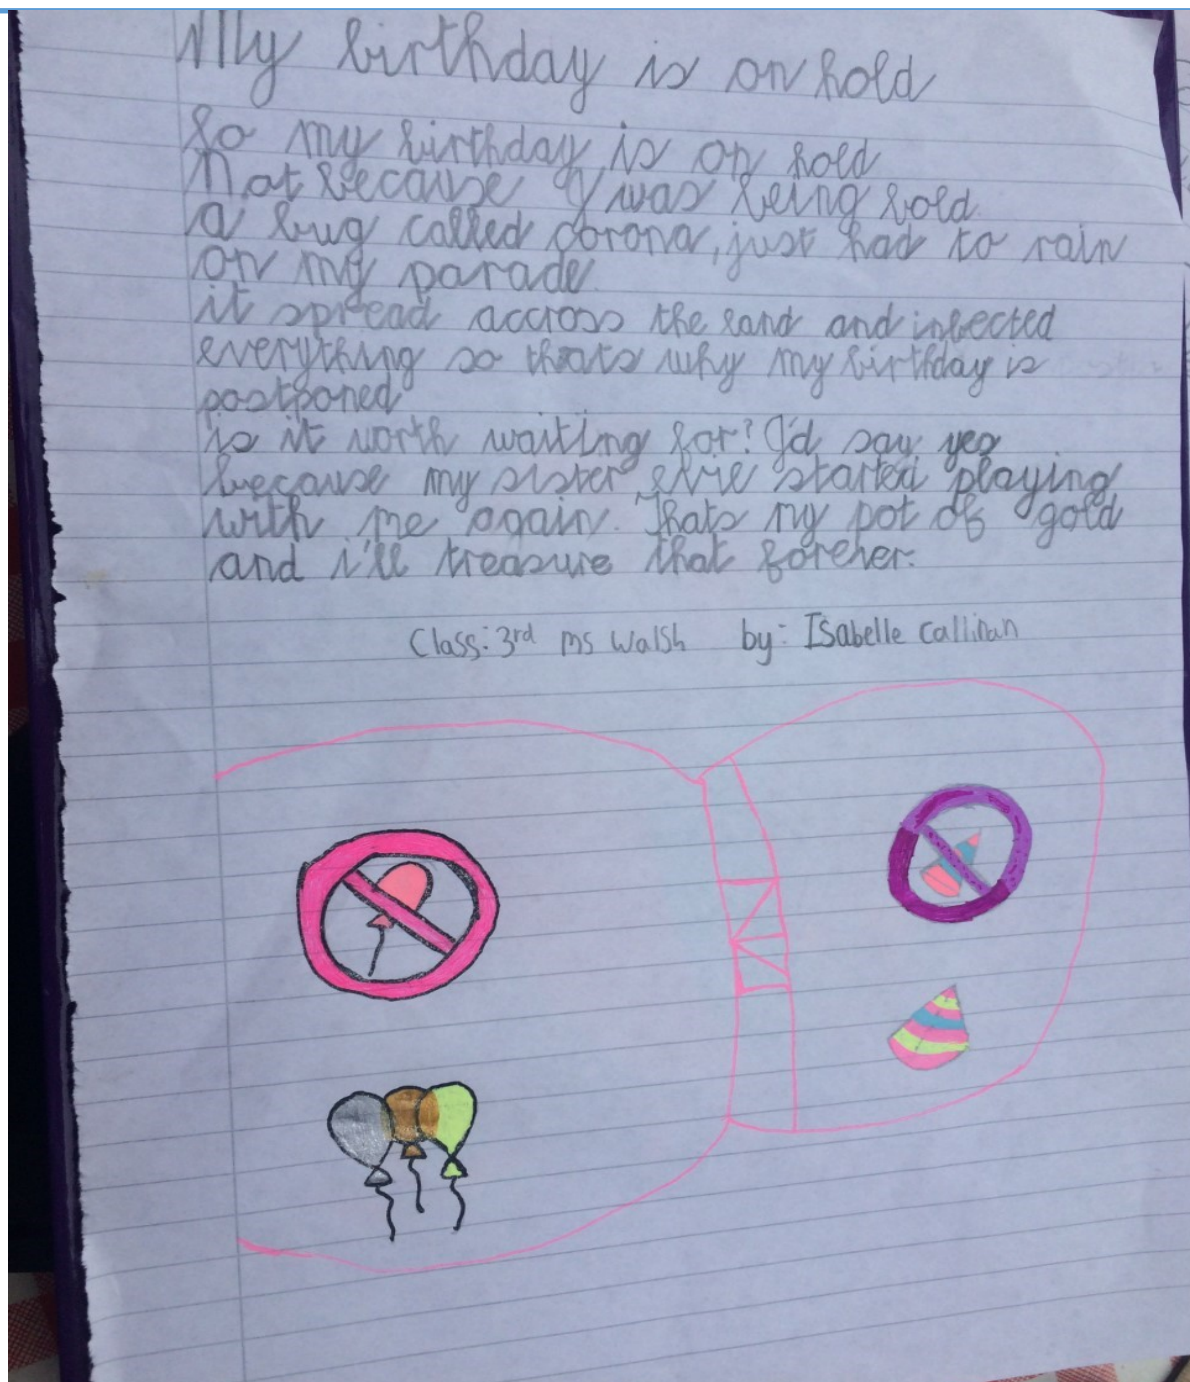 My birthday is on hold
So my birthday is on hold
Not because I was being bold
a bug called corona, just had to rain
on my parade.
it spread accross the land and infected
everything so thats why my birthday is
postponed
is it worth waiting for? I'd say yes
because my sister evie started playing
with me again. Thats my pot of gold
and i'll treasure that forever.
Class: 3rd Ms Walsh by: Isabelle Callinan